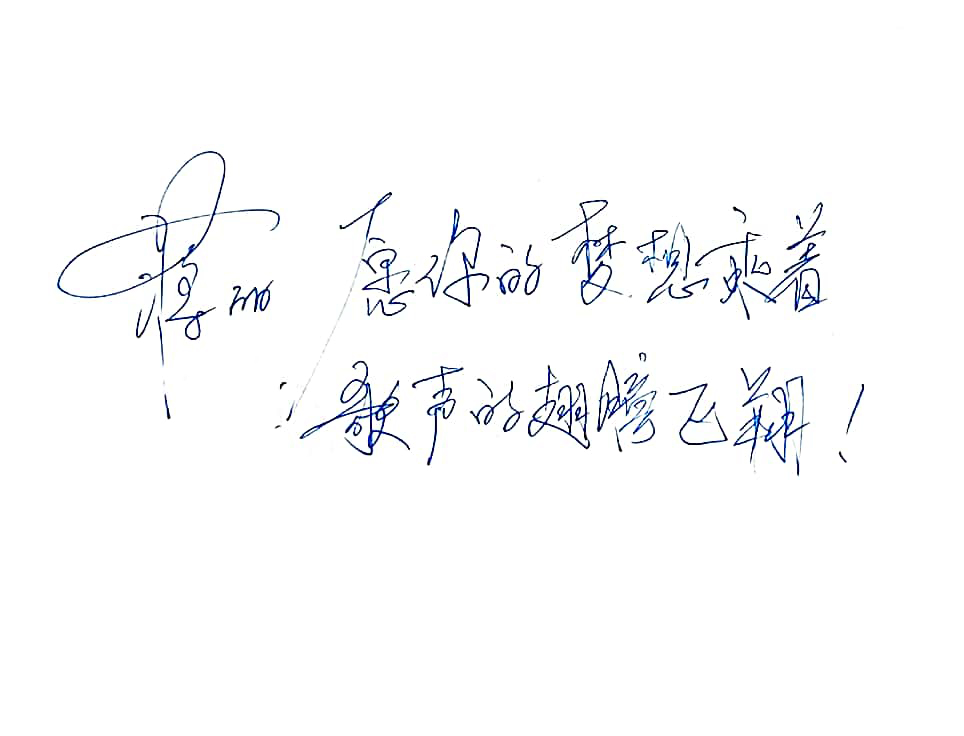 愿你的梦想乘着
歌声的翅膀飞翔！